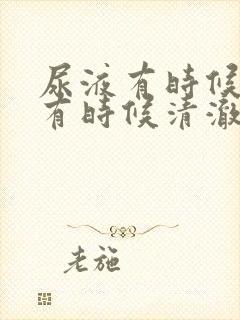 尿液有時候
有時候清澈
老施